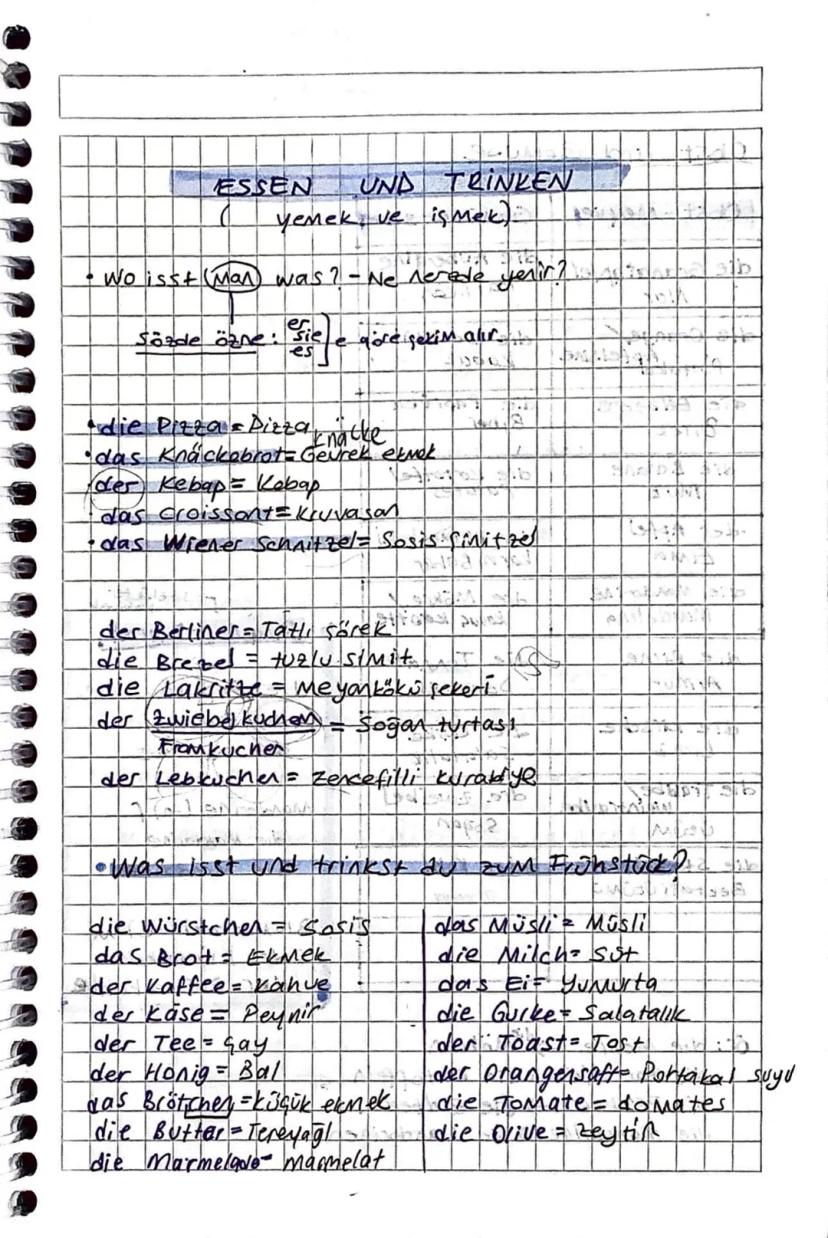 ESSEN UND TRİNKEN
( yemek ve işmek)
• Wo isst (Man) was? - Ne nerede yenir?
Sözde özne: er sie es ] e göre çekim alır.
• die Pizza = Pizza
knäcke
• das Knäckebrot = Gevrek ekmek
(der) Kebap = Kebap
• das Croissont = Kruvasan
• das Wiener Schnitzel = Sosis Şinitzel
der Berliner = Tatlı çörek
die Brezel = tuzlu simit
die Lakritze = Meyankökü şekeri
der Zwiebelkuchen = Soğan turtası
der Lebkuchen = Zencefilli kurabiye
• Was isst und trinkst du zum Frühstück?
die Würstchen = Sosis
das Brot = Ekmek
der Kaffee = Kahve
der Käse = Peynir
der Tee = Çay
der Honig = Bal
das Brötchen = küçük ekmek
die Butter = Tereyağı
die Marmelade - marmelat
das Müsli = Müsli
die Milch = Süt
das Ei = Yumurta
die Gurke = Salatalık
der Toast = Tost
der Orangensaft = Portakal suyu
die Tomate = domates
die Olive = Zeytin